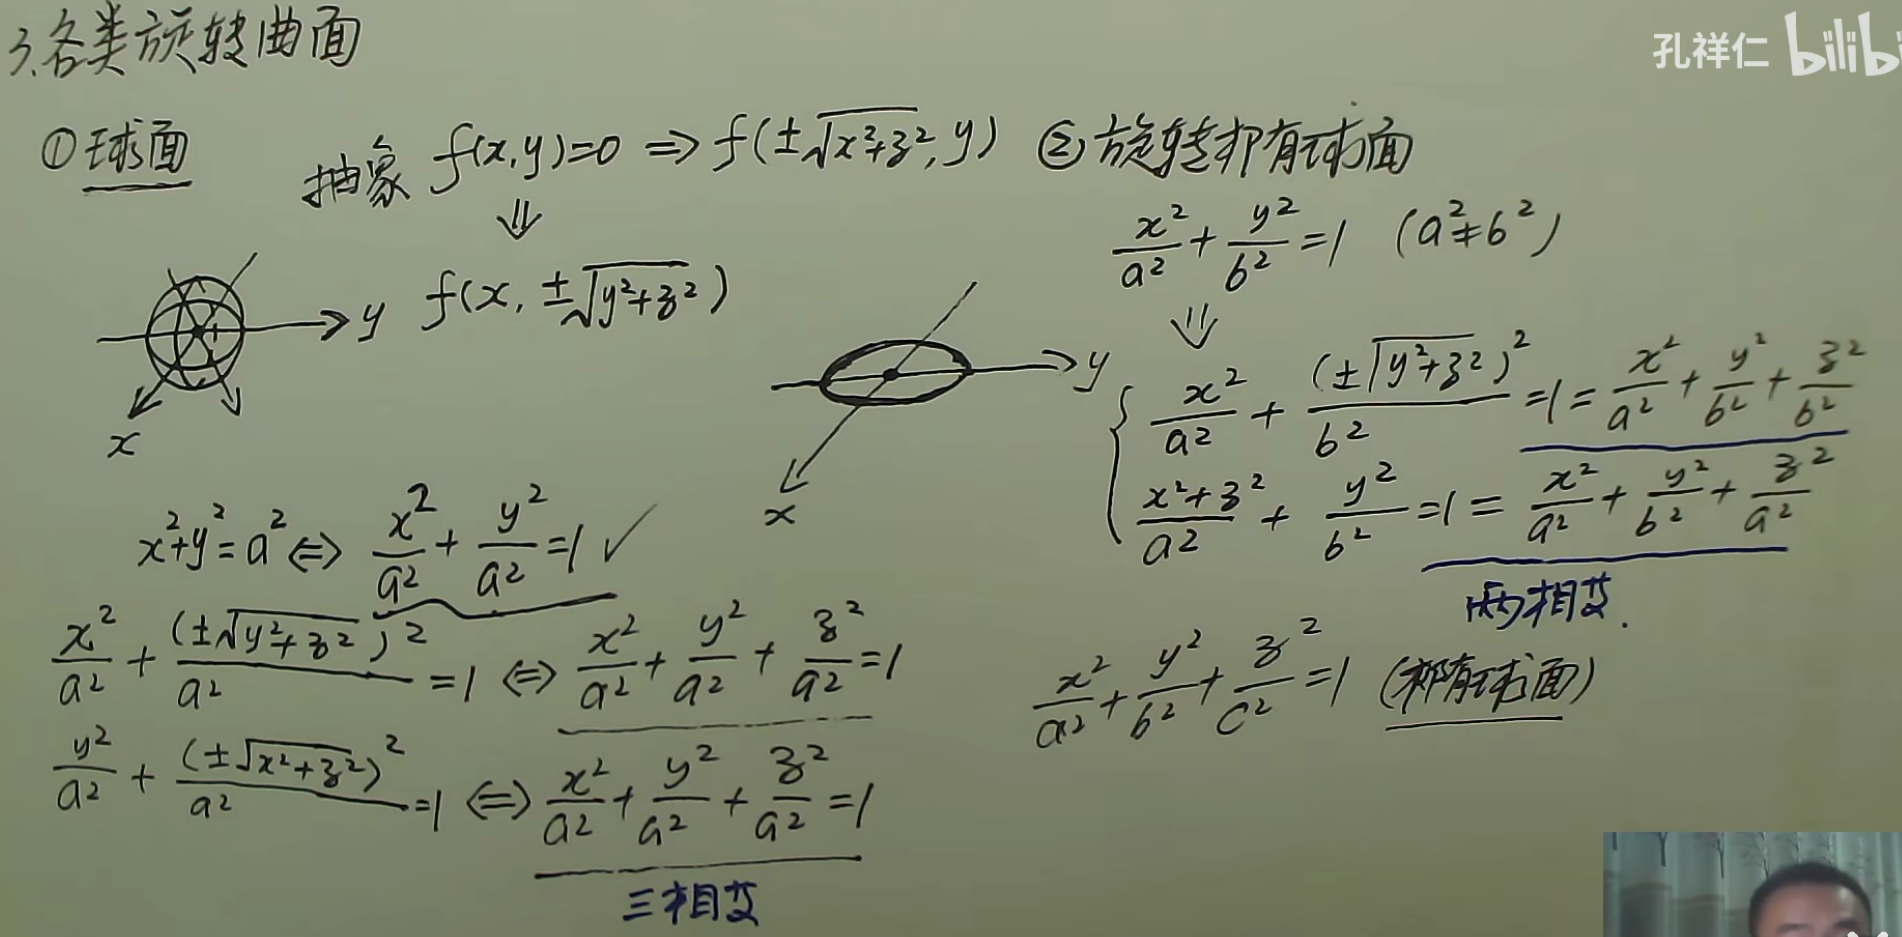 3.各类旋转曲面
孔祥仁 bilibi
①球面
抽象 f(x,y)=0 ⇒ f(±√(x²+z²), y)
⇓
f(x, ±√(y²+z²))
y
x
x²+y²=a² ⇔ x²/a² + y²/a² =1 ✓
x²/a² + (±√(y²+z²))²/a² =1 ⇔ x²/a² + y²/a² + z²/a² =1
y²/a² + (±√(x²+z²))²/a² =1 ⇔ x²/a² + y²/a² + z²/a² =1
三相等
②旋转椭球面
x²/a² + y²/b² =1 (a²≠b²)
⇓
y
x
{ x²/a² + (±√(y²+z²))²/b² =1= x²/a² + y²/b² + z²/b²
(x²+z²)/a² + y²/b² =1= x²/a² + y²/b² + z²/a²
两相等.
x²/a² + y²/b² + z²/c² =1 (椭球面)